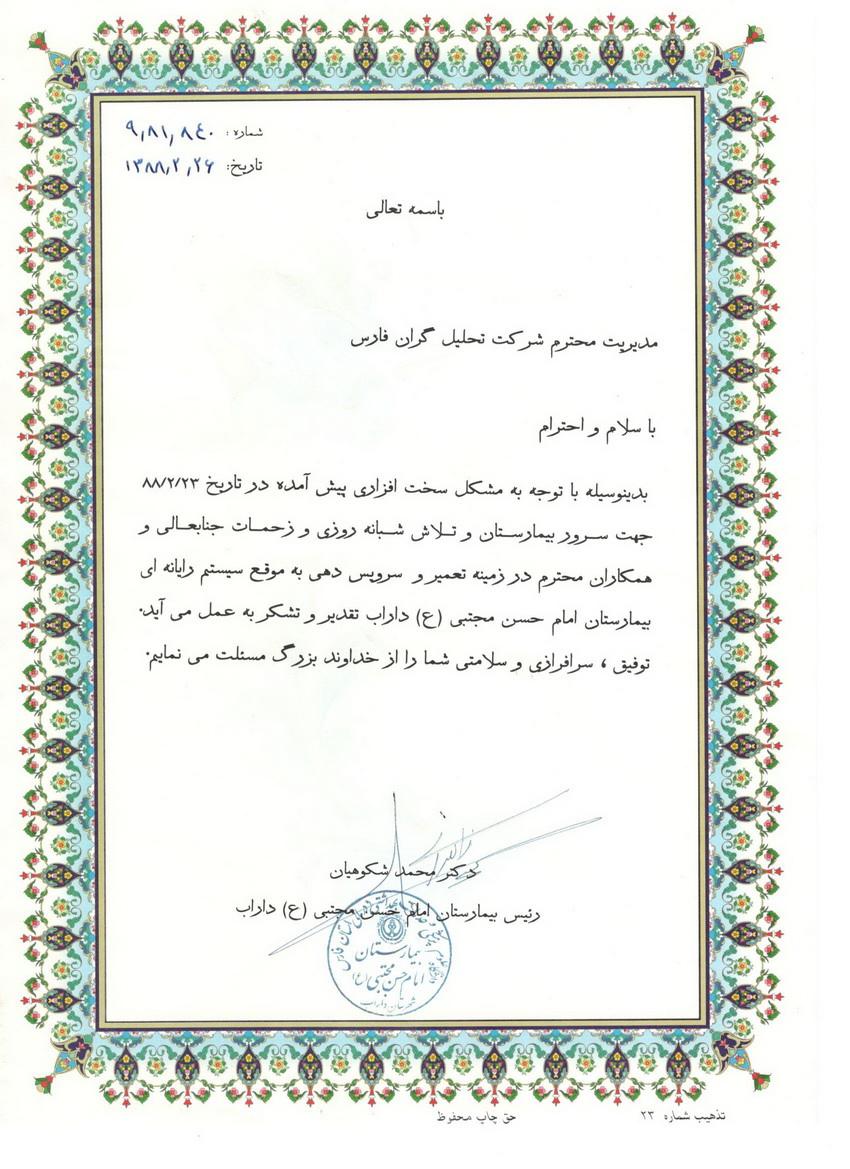 شماره: ۹٫۸۱٫۸۴۰
تاریخ: ۱۳۸۸٫۲٫۲۶
باسمه تعالی
مدیریت محترم شرکت تحلیل گران فارس
با سلام و احترام
بدینوسیله با توجه به مشکل سخت افزاری پیش آمده در تاریخ ۸۸/۲/۲۳
جهت سرور بیمارستان و تلاش شبانه روزی و زحمات جنابعالی و
همکاران محترم در زمینه تعمیر و سرویس دهی به موقع سیستم رایانه ای
بیمارستان امام حسن مجتبی (ع) داراب تقدیر و تشکر به عمل می آید.
توفیق ، سرافرازی و سلامتی شما را از خداوند بزرگ مسئلت می نماییم.
دکتر محمد شکوهیان
رئیس بیمارستان امام حسن مجتبی (ع) داراب
بیمارستان
امام حسن مجتبی (ع)
شهرستان داراب
حق چاپ محفوظ
تذهیب شماره ۲۳